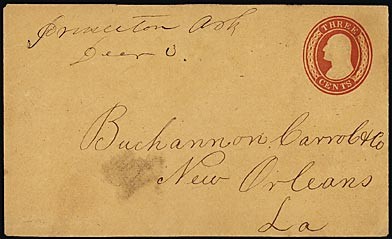 Princeton Ark
THREE
CENTS
Buchannon, Carrol & Co
New Orleans
La